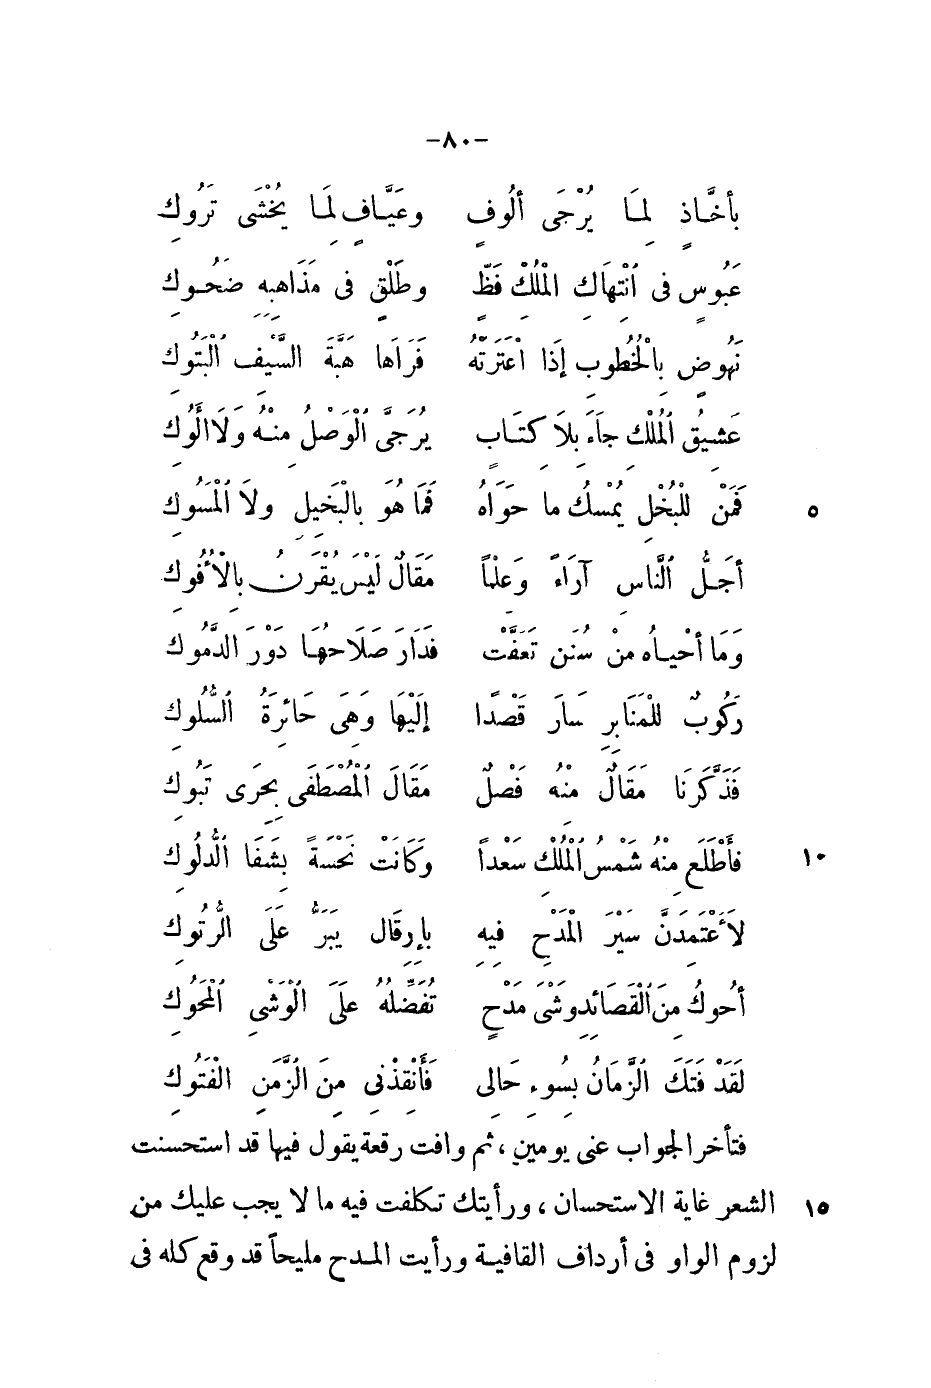 -٨٠-
بأَخَّاذٍ لِمَا يُرْجَى أَلُوفٍ وعَيَّافٍ لِمَا يُخْشَى تَرُوكِ
عَبُوسٍ فى ٱنْتِهَاكِ الْمُلْكِ فَظٍّ وطَلْقٍ فى مَذَاهِبِهِ ضَحُوكِ
نَهُوضٍ بِالْخُطُوبِ إِذَا ٱعْتَرَتْهُ فَرَاهَا هَبَّةَ السَّيْفِ الْبَتُوكِ
عَشِيقُ ٱلْمُلْكِ جَاءَ بِلاَ كِتَابٍ يُرَجَّى ٱلْوَصْلُ مِنْهُ وَلَا أَلُوكِ
٥ فَمَنْ لِلْبُخْلِ يُمْسِكُ ما حَوَاهُ فَمَا هُوَ بِالْبَخِيلِ ولاَ ٱلْمَسُوكِ
أَجَلُّ ٱلنَّاسِ آرَاءً وَعِلْماً مَقَالٌ لَيْسَ يُقْرَنُ بِالْأُفُوكِ
وَمَا أَحْيَاهُ مِنْ سُنَنٍ تَعَفَّتْ فَدَارَ صَلَاحُهَا دَوْرَ الدَّمُوكِ
رَكُوبٌ لِلْمَنَابِرِ سَارَ قَصْدًا إِلَيْهَا وَهِىَ حَائِرَةُ ٱلسُّلُوكِ
فَذَكَّرَنَا مَقَالٌ مِنْهُ فَصْلٌ مَقَالَ ٱلْمُصْطَفَى بِحِرَى تَبُوكِ
١٠ فَأَطْلَعَ مِنْهُ شَمْسُ ٱلْمُلْكِ سَعْداً وَكَانَتْ نَحْسَةً بِشَفَا ٱلدُّلُوكِ
لَأَعْتَمِدَنَّ سَيْرَ الْمَدْحِ فِيهِ بِإِرقَالٍ يَبَرُّ عَلَى الرُّتُوكِ
أَحُوكُ مِنَ ٱلْقَصَائِدِ وَشْىَ مَدْحٍ تُفَضِّلُهُ عَلَى ٱلْوَشْىِ ٱلْمَحُوكِ
لَقَدْ فَتَكَ ٱلزَّمَانُ بِسُوءِ حَالِى فَأَنْقِذْنِى مِنَ ٱلزَّمَنِ الْفَتُوكِ
فتأخر الجواب عنى يومين، ثم وافت رقعة يقول فيها قد استحسنت
١٥ الشعر غاية الاستحسان، ورأيتك تكلفت فيه ما لا يجب عليك من
لزوم الواو فى أرداف القافية ورأيت المدح مليحاً قد وقع كله فى